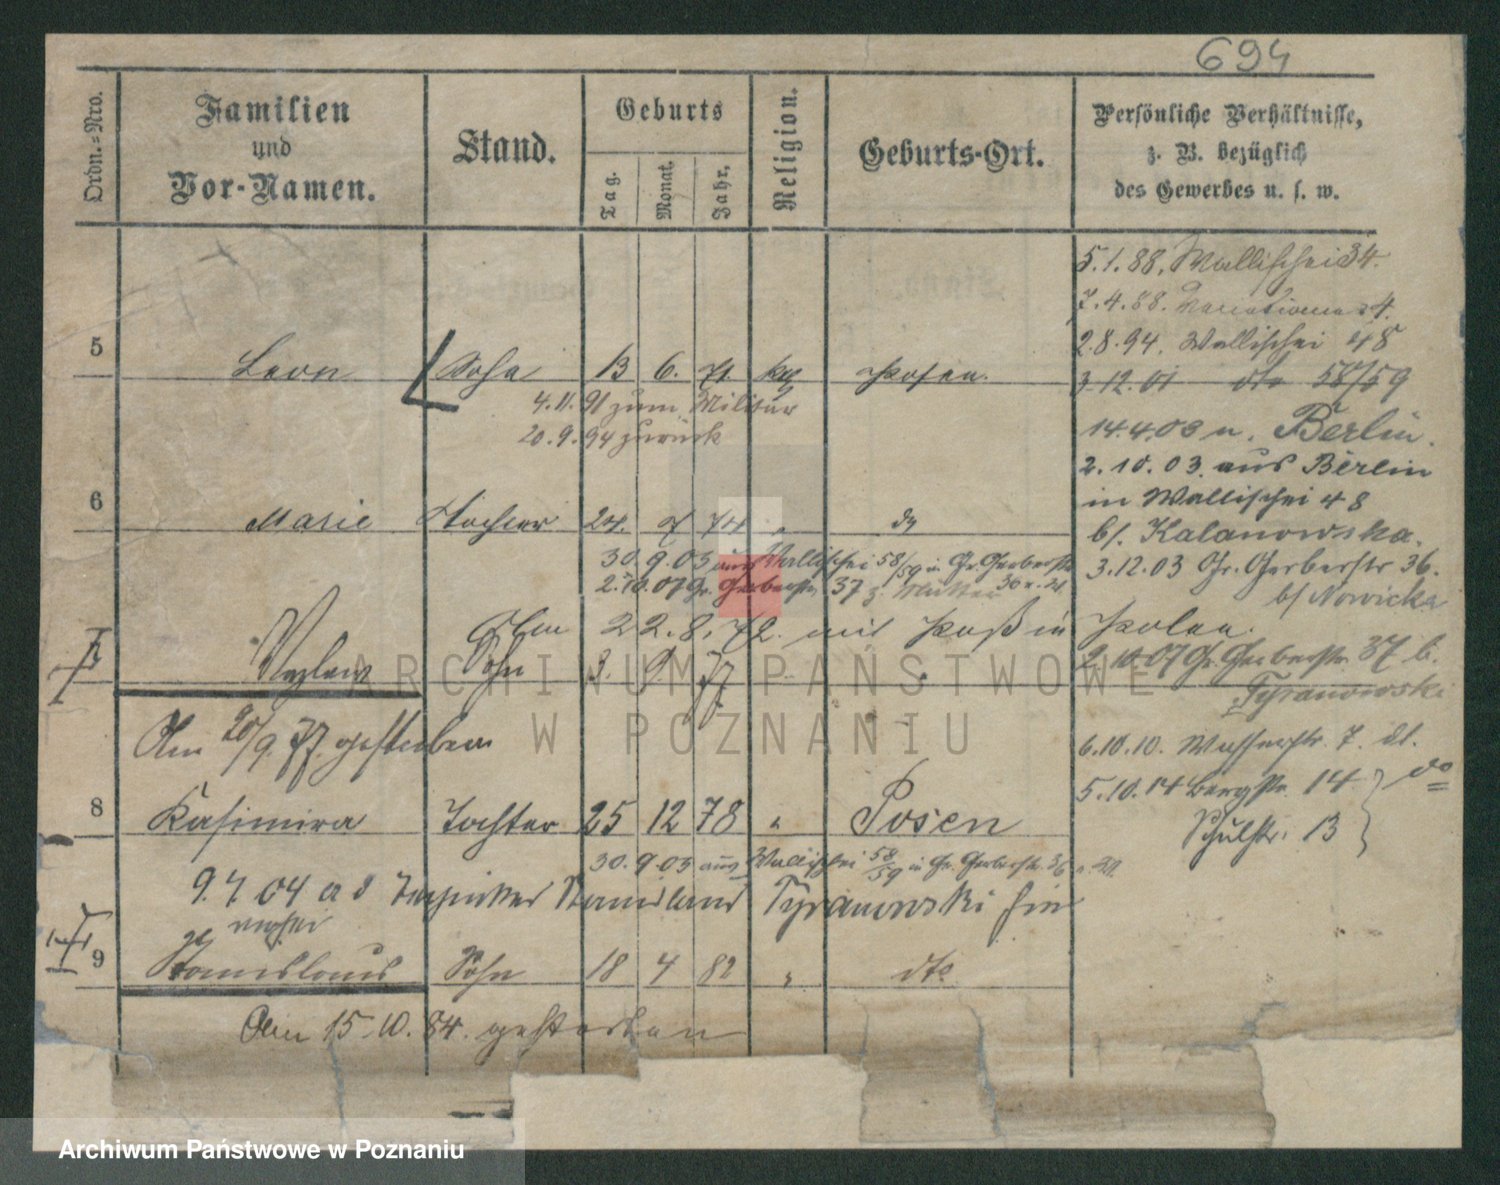 694
Ordn.=Nro.
Familien
und
Vor-Namen.
Stand.
Geburts
Tag.
Monat.
Jahr.
Religion.
Geburts-Ort.
Persönliche Verhältnisse,
z. B. bezüglich
des Gewerbes u. s. w.
5.1.88. Wallischei 34.
7.4.88. 4.
2.8.94. Wallischei 48
5 Leon Sohn 13 6. 71. kath Posen.
3.12.01 dto 58/59
4.11.91 zum Militär
20.9.94 zurück
14.4.03 n. Berlin.
2.10.03. aus Berlin
in Wallischei 48
b/. Kalanowska.
6 Marie Tochter 24. 7 74 " do
30.9.03 aus Wallischei 58/59 n. Gr. Gerberstr
2.10.07 Gr. Gerberstr 37 z. Mutter 36 n. 21.
3.12.03 Gr. Gerberstr 36.
b/ Nowicka
Am 22.8.72. mit Paß in Polen.
7 Wazlaw Sohn 3. 9. 77.
2.10.07 Gr. Gerberstr. 37 b.
Tyranowski
Am 20/9.77. gestorben
6.10.10. Wasserstr. 7. dl.
5.10.14 Bergstr. 14 do
Schulstr. 13
8 Kasimira Tochter 25 12 78 " Posen
30.9.03 aus Wallischei 58/59 n Gr. Gerberstr. 36
9.7.04 a d Stanislaus Tyranowski hier
9 Stanislaus Sohn 18 4 82 " dto
Am 15.10.84. gestorben
ARCHIWUM PAŃSTWOWE
W POZNANIU
Archiwum Państwowe w Poznaniu